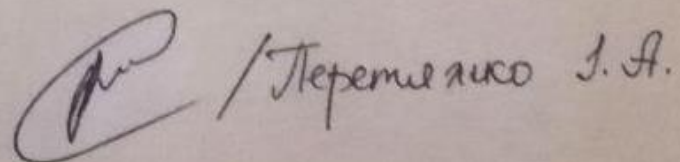 /Перетятко І. А.